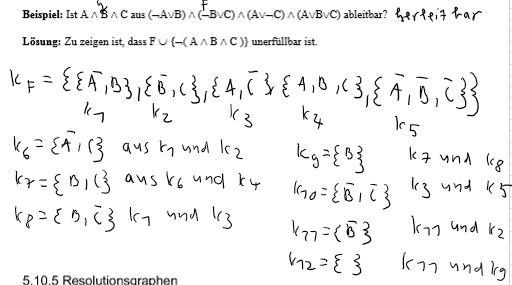 G F
Beispiel: Ist A ∧ B ∧ C aus (¬A∨B) ∧ (¬B∨C) ∧ (A∨¬C) ∧ (A∨B∨C) ableitbar? herleitbar
Lösung: Zu zeigen ist, dass F ∪ {¬( A ∧ B ∧ C )} unerfüllbar ist.
K_F = {{A̅, B}, {B̅, C}, {A, C̅}, {A, B, C}, {A̅, B̅, C̅}}
K1 K2 K3 K4 K5
K6 = {A̅, C} aus K1 und K2
K7 = {B, C} aus K6 und K4
K8 = {B, C̅} K1 und K3
K9 = {B} K7 und K8
K10 = {B̅, C̅} K3 und K5
K11 = {B̅} K11 und K2
K12 = { } K11 und K9
5.10.5 Resolutionsgraphen